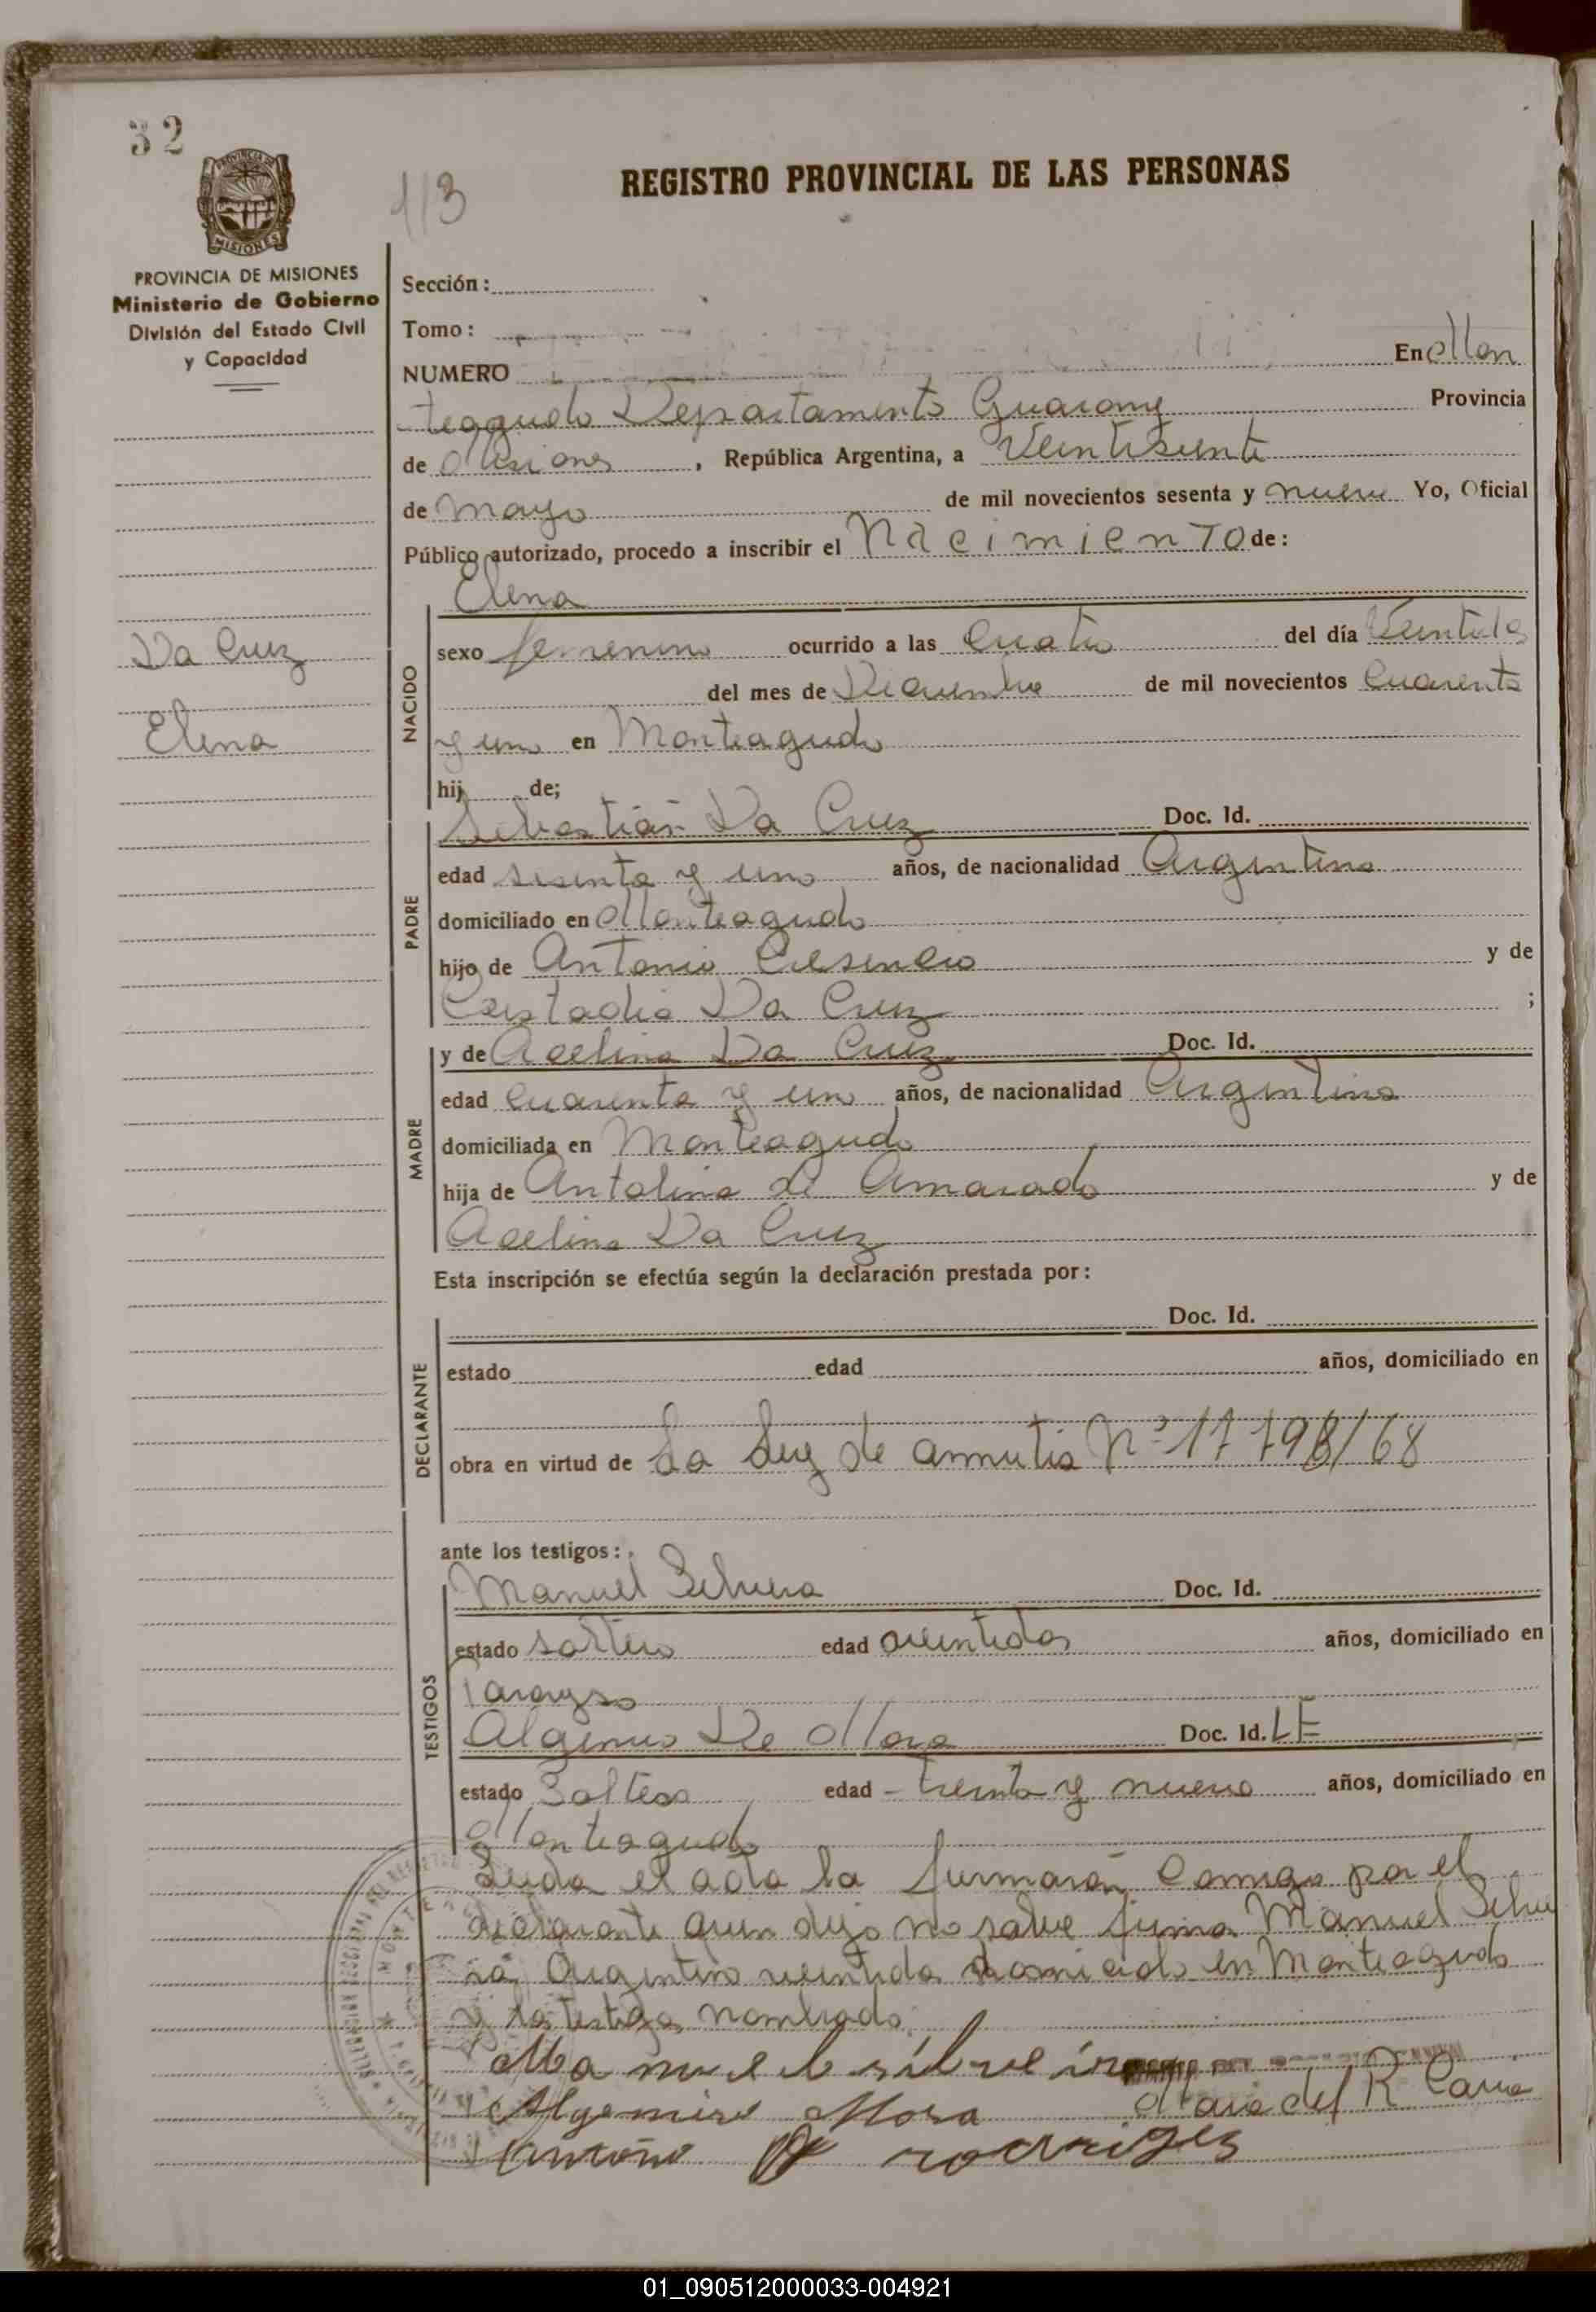 32
113
REGISTRO PROVINCIAL DE LAS PERSONAS
PROVINCIA DE MISIONES
Ministerio de Gobierno
División del Estado Civil
y Capacidad
Sección:
Tomo:
NUMERO En Mon
teagudo Departamento Guarany Provincia
de Misiones, República Argentina, a Veintisiete
de mayo de mil novecientos sesenta y nueve Yo, Oficial
Público autorizado, procedo a inscribir el Nacimiento de:
Elena
Da Cruz
Elena
NACIDO
sexo femenino ocurrido a las Cuatro del día Veintidos
del mes de Diciembre de mil novecientos Cuarenta
y uno en Monteagudo
hij de;
PADRE
Sebastián Da Cruz Doc. Id.
edad sesenta y uno años, de nacionalidad Argentino
domiciliado en Monteagudo
hijo de Antonio y de
Da Cruz ;
MADRE
y de Acelina Da Cruz Doc. Id.
edad Cuarenta y uno años, de nacionalidad Argentina
domiciliada en Monteagudo
hija de Antolina de Amarado y de
Acelina Da Cruz
Esta inscripción se efectúa según la declaración prestada por:
DECLARANTE
Doc. Id.
estado edad años, domiciliado en
obra en virtud de La Ley de amnistia Nº 17798/68
ante los testigos:
TESTIGOS
Manuel Silvera Doc. Id.
estado soltero edad veintidos años, domiciliado en
Parayso
De Mora Doc. Id. LE
estado Soltero edad treinta y nueve años, domiciliado en
Monteagudo
Leida el acta la firmaran Comigo por el
declarante quien dijo no saber firmar Manuel Silve
ra, Argentino veintidos domiciado en Monteagudo
y los testigos nombrado.
Manuel silveira
Algemiro Mora
Maria del R
Antonio rodrigez
01_090512000033-004921